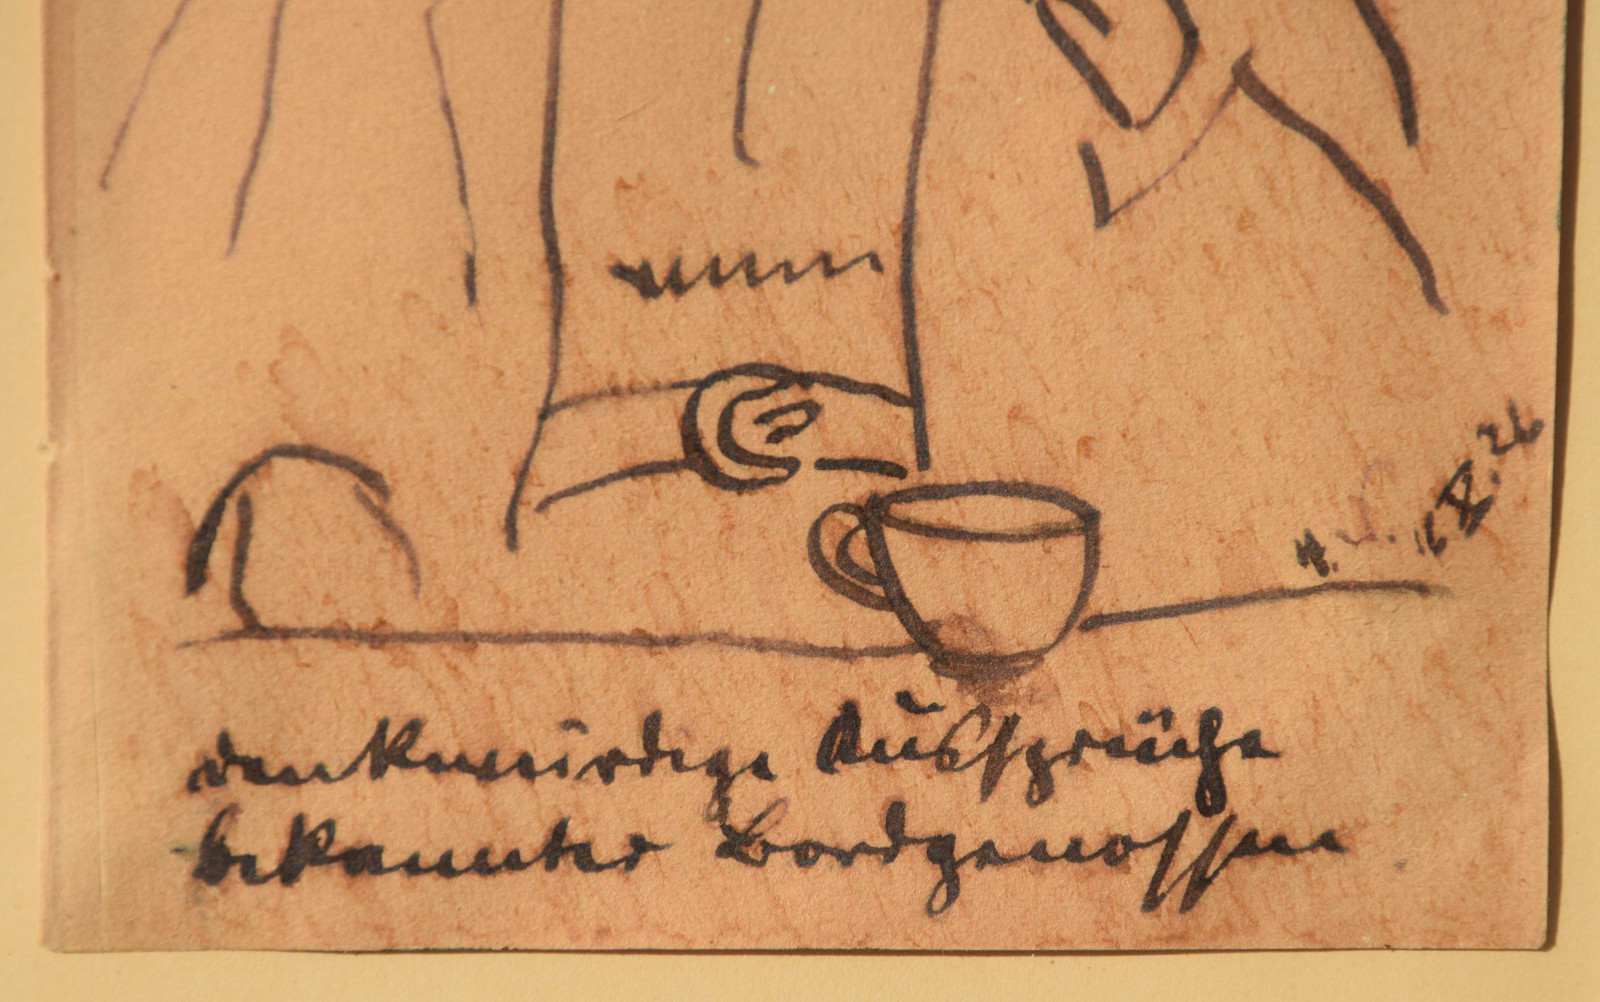 16 X. 26
denkwürdige Aussprüche
bekannter Bordgenossen